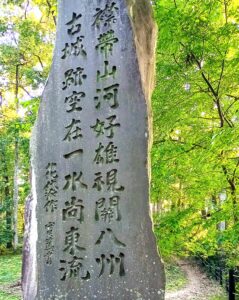 襟帯山河好雄視關八州
古城跡空在一水尚東流